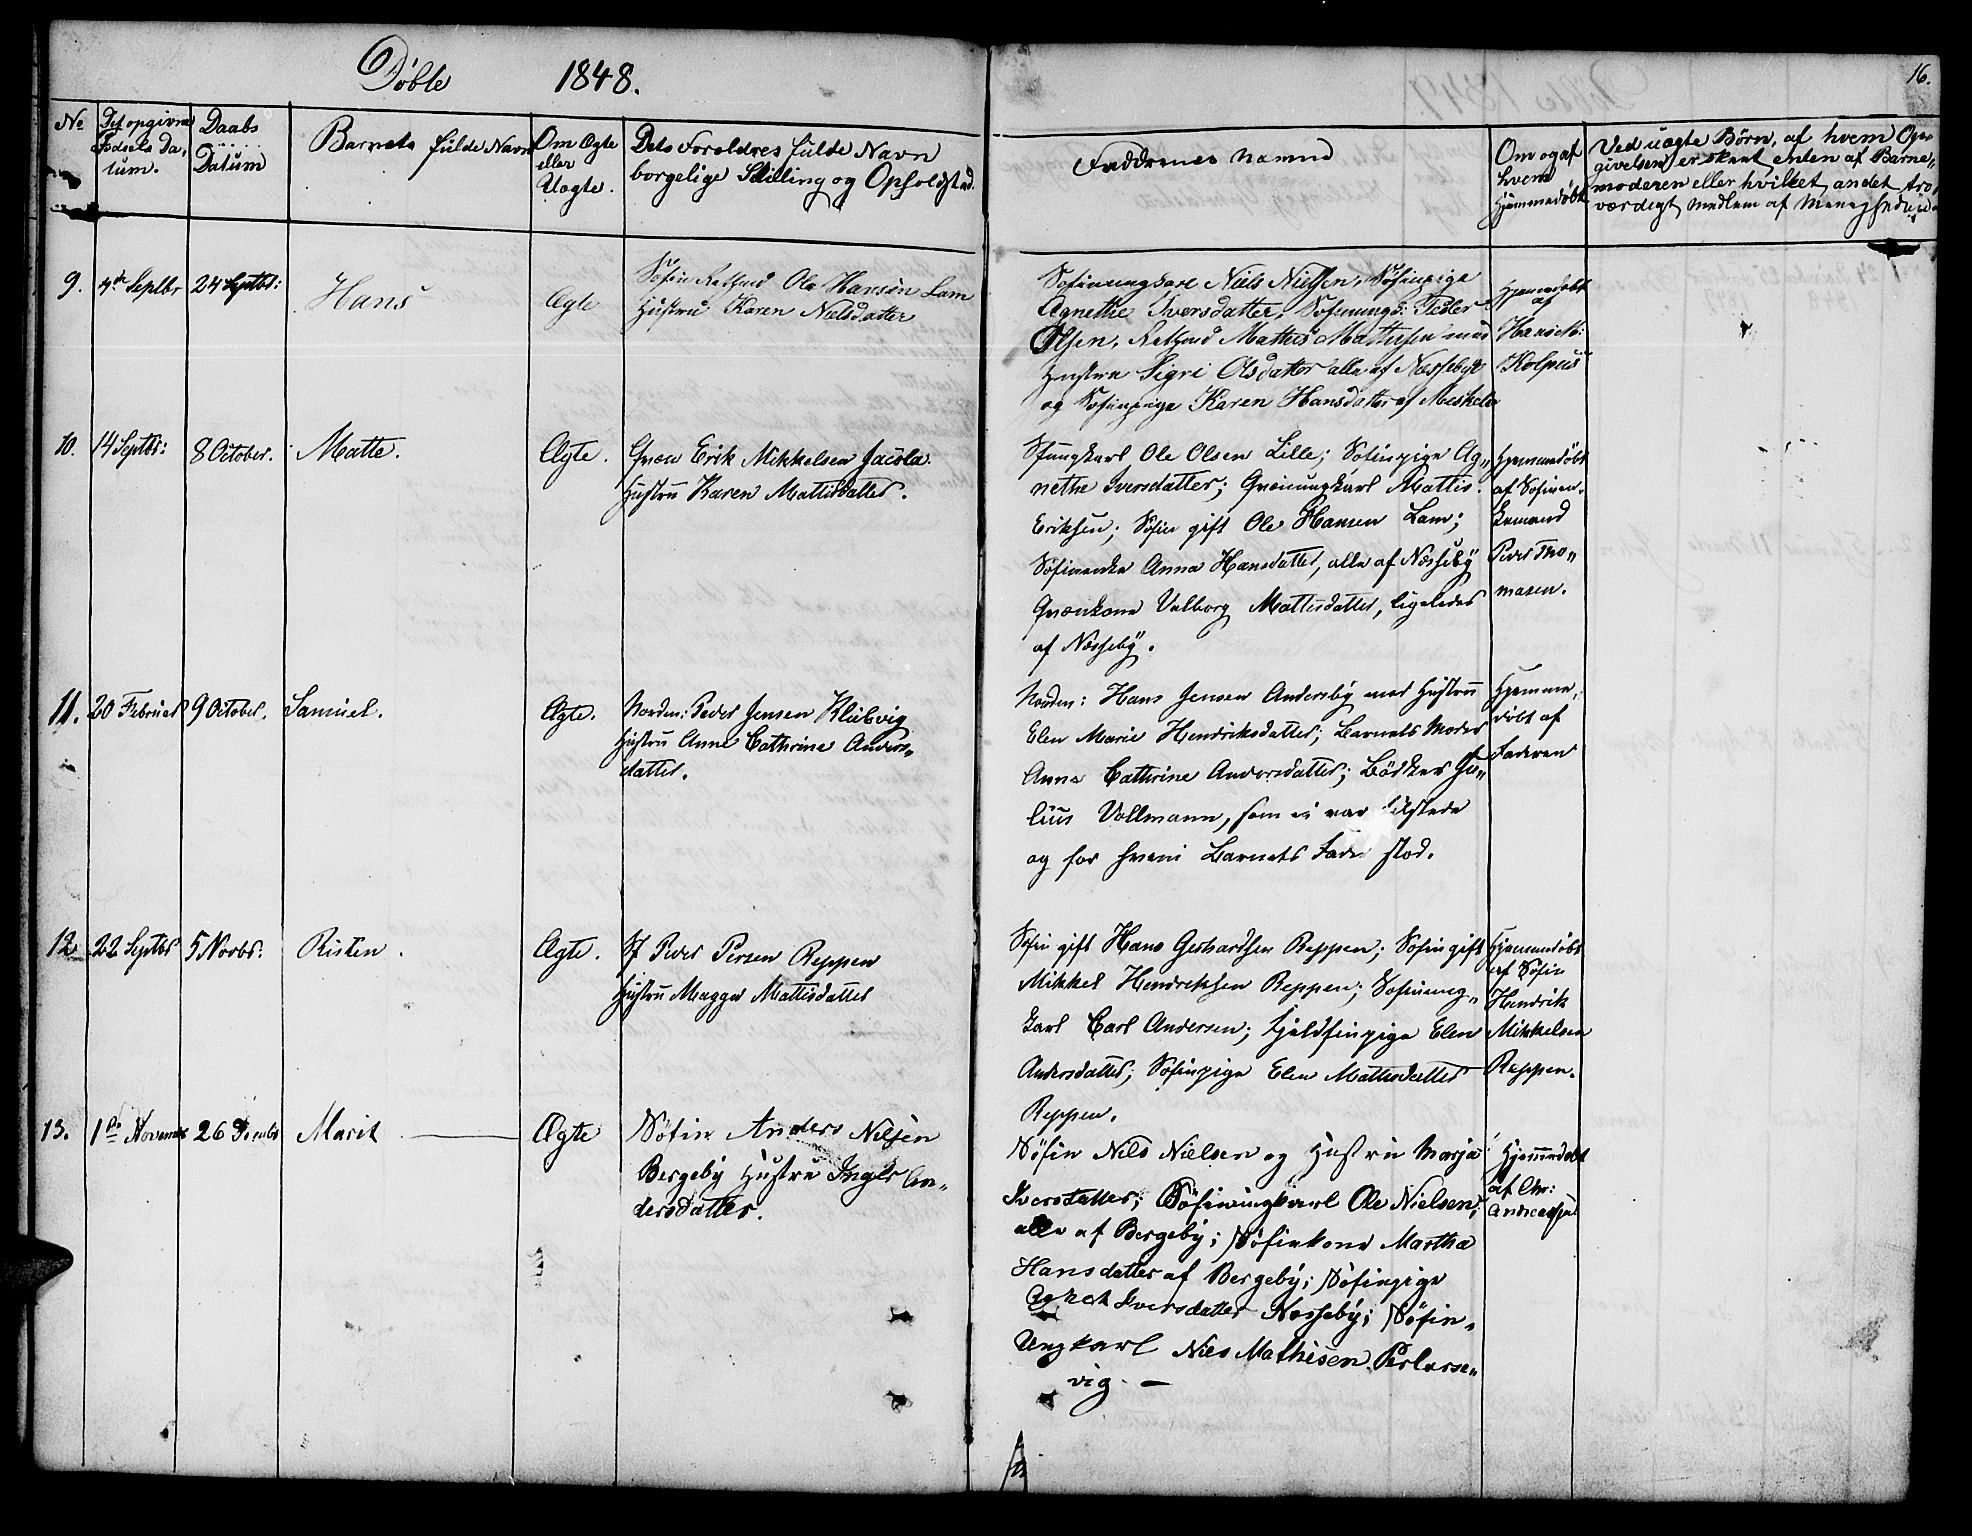 Döbte 1848.
16.
No
Det opgivne Födsels Datum.
Daabs Datum
Barnets fulde Navn
Om Ægte eller Uægte.
Dets Foroldres fulde Navn
borgelige Stilling og Opholdstad.
Faddrenes Navne
Om og af hvem Hjemmedöbt
Ved uægte Börn, af hvem Op-
givelsen er skeet enten af Barne-
moderen eller hvilket andet tro-
værdigt Medlem af Menigheden
9. 4de Septbr 24 Septbr: Hans Ægte
Söfin Ole Hansen Lam
Hustru Karen Nielsdatter
Söfinungkarl Niels Nielsen, Söfinpige
Agnethe Iversdatter, Söfinungk: Peder
Olsen, Mathis Mathisen med
Hustru Sigri Olsdatter alle af Næsseby
og Söfinpige Karen Hansdatter af Meskelv
Hjemmedöbt
af
Hans M:
Kolpus
10. 14 Septbr: 8 October. Matte. Ægte.
Qvæn Erik Mikkelsen Jacola.
Hustru Karen Mattisdatter.
Sfungkarl Ole Olsen Lille; Söfinpige Ag-
nethe Iversdatter; Qvænungkarl Mattis
Eriksen; Söfin gift Ole Hansen Lam;
Söfinenke Anna Hansdatter, alle af Næsseby
Qvænkone Valborg Mattisdatter, ligeledes
af Næsseby.
Hjemmedöbt
af Söfinen
Peder Tho-
masen.
11. 20 Februar 9 October. Samuel. Ægte.
Norden: Peder Jensen Klubvig
Hustru Anne Cathrine Anders-
datter.
Norden: Hans Jensen Andersby med Hustru
Elen Marie Hendriksdatter; Barnets Moder
Anne Cathrine Andersdatter; Bödker Ju-
lius Vollmann, som ei var tilstede
og for hvem Barnets Fader stod.
Hjemme-
döbt af
Faderen
12 22 Septbr 5 Novbr: Risten. Ægte.
Sf Peder Persen Reppen
Hustru Magga Mattisdatter
Söfin gift Hans Gerhardsen Reppen; Söfin gift
Mikkel Hendriksen Reppen; Söfinung-
karl Carl Andersen; Fjeldfinpige Elen
Andersdatter; Söfinpige Elen Mattisdatter
Reppen.
Hjemmedöbt
af Söfin
Hendrik
Mikkelsen
Reppen.
13. 1de November 26 Decembr Marit Ægte
Söfin Anders Nilsen
Bergeby Hustru Inger An-
dersdatter.
Söfin Nils Nielsen og Hustru Marja
Iversdatter; Söfinungkarl Ole Nielsen;
alle af Bergeby; Söfinkone Martha
Hansdatter af Bergeby; Söfinpige
Agnet Iversdatter Næsseby; Söfin-
Ungkarl Nils Mathisen Perlarse-
vig. —
Hjemmedöbt
af Chr:
Andreassen